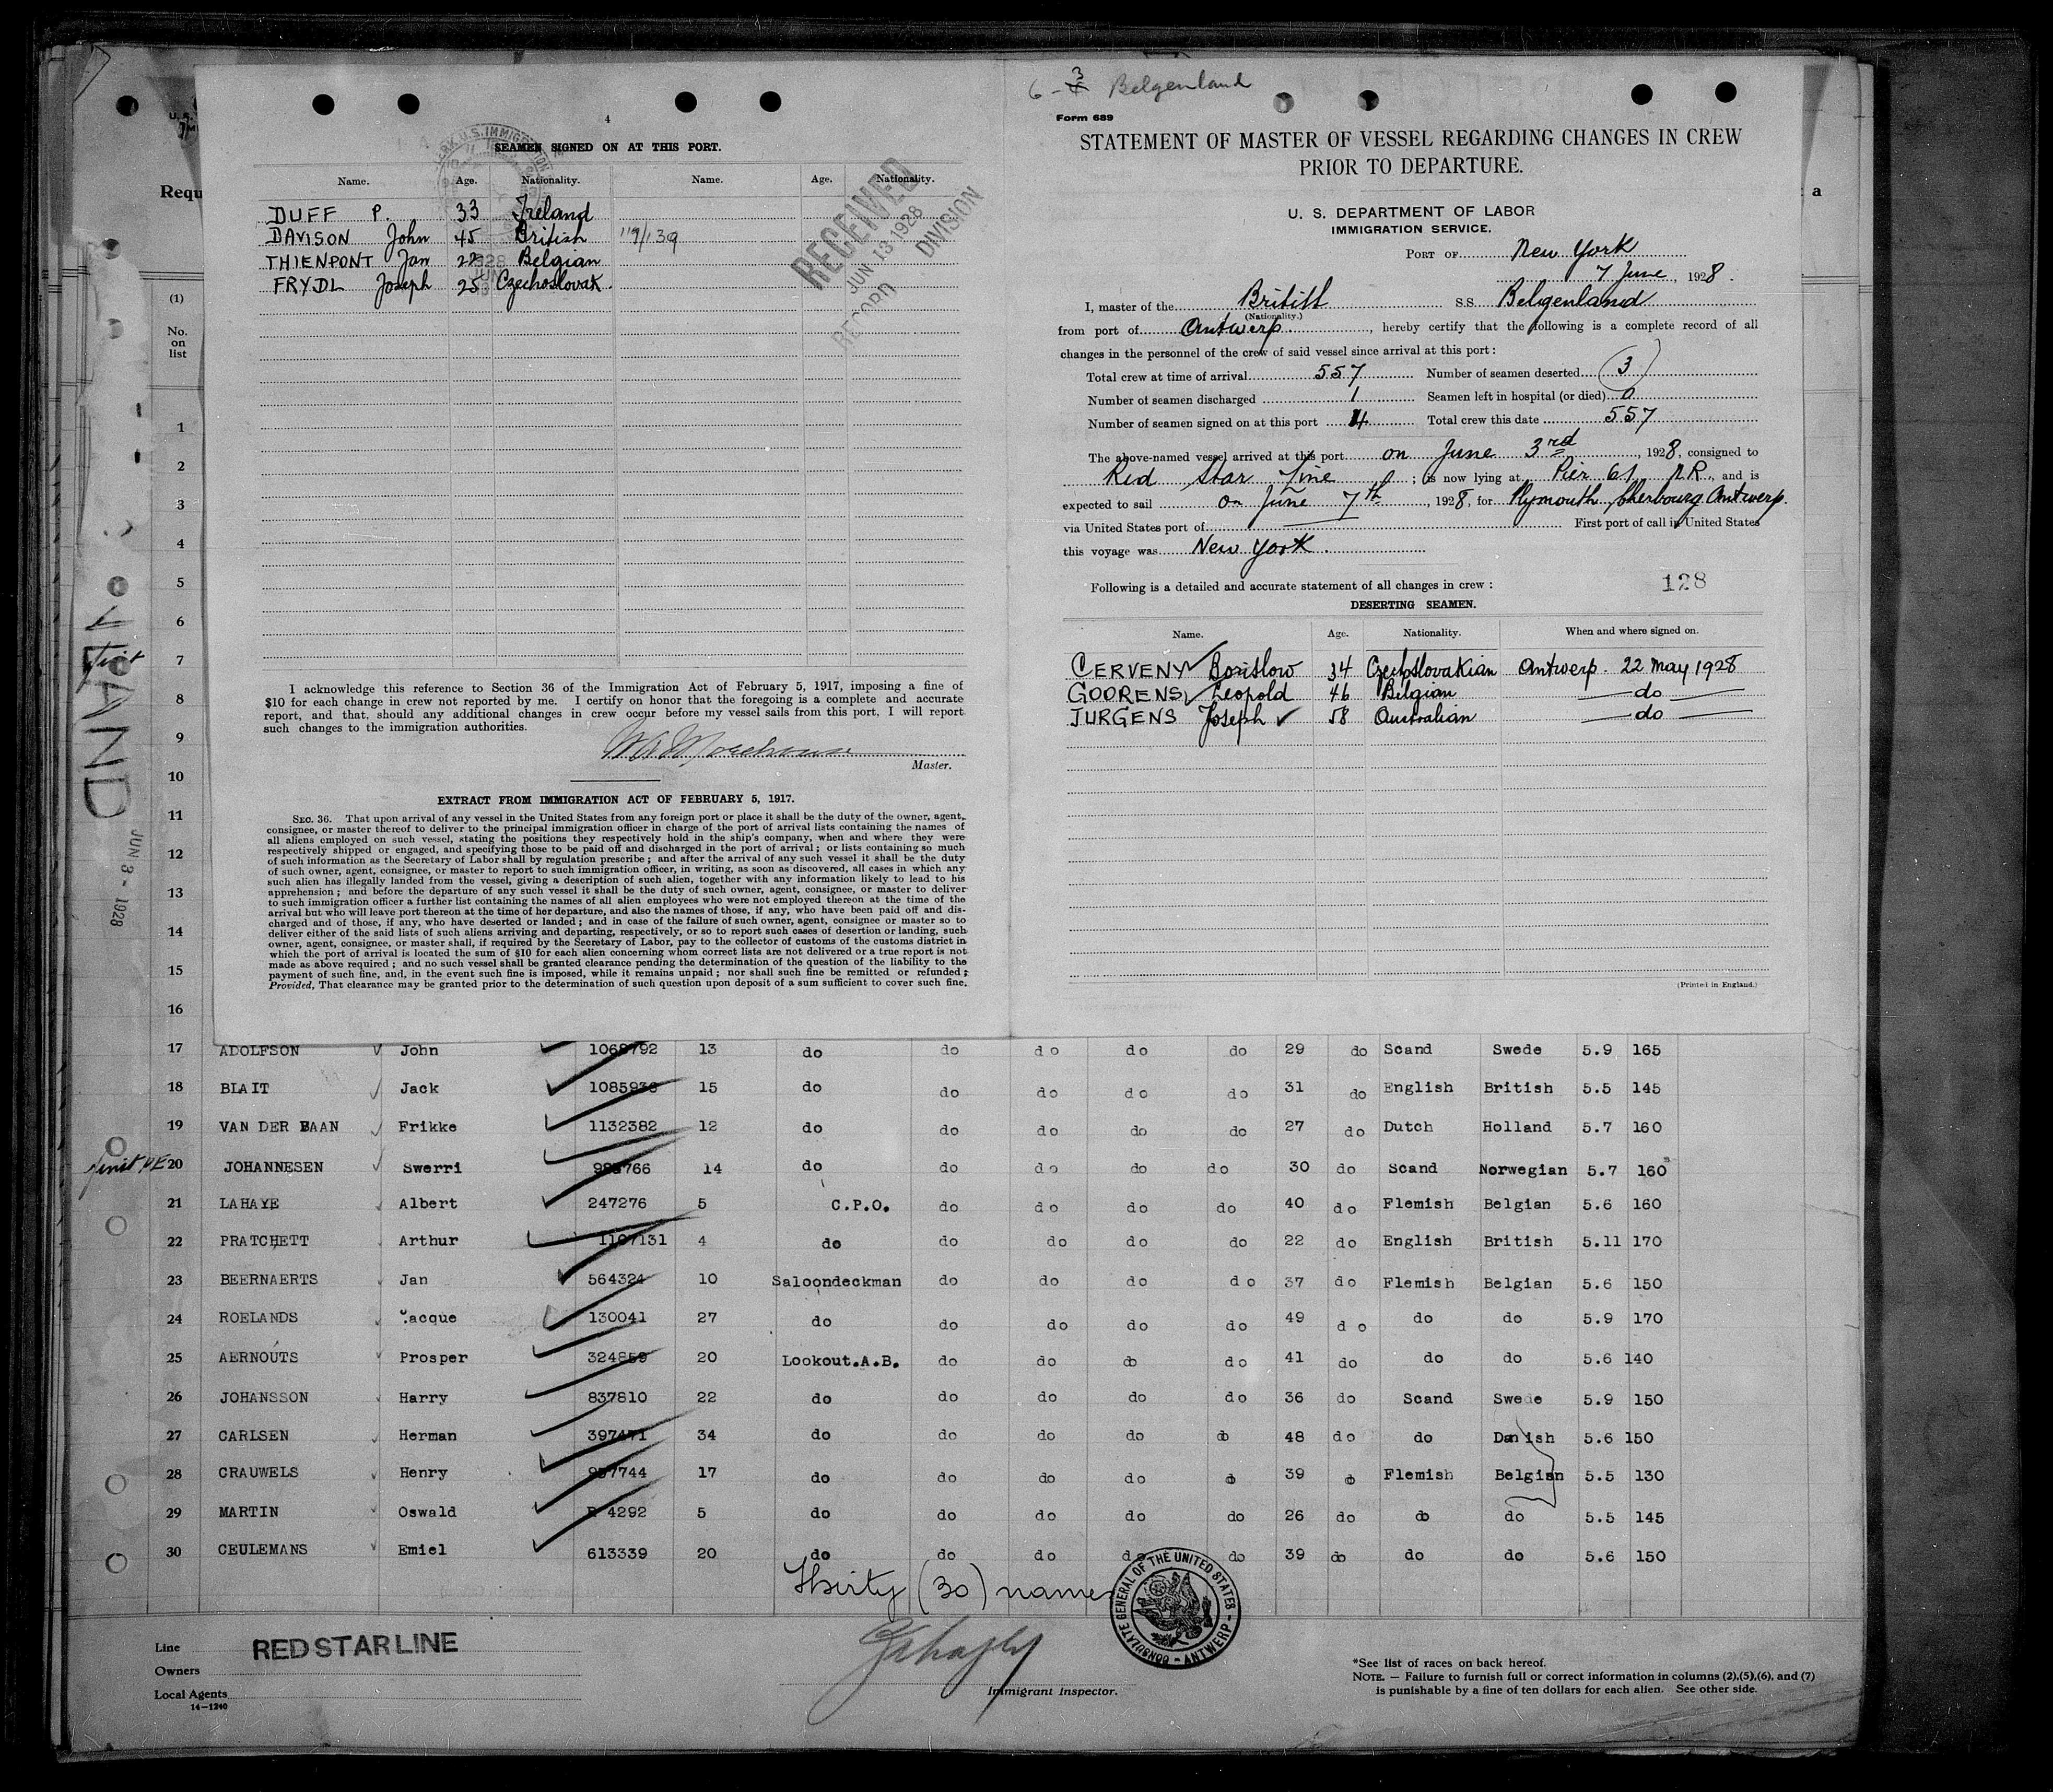 6 - 3 Belgenland
4
SEAMEN SIGNED ON AT THIS PORT.
Name. Age. Nationality. Name. Age. Nationality.
DUFF P. 33 Ireland
DAVISON John 45 British
THIENPONT Jan 22 Belgian
FRYDL Joseph 25 Czechoslovak.
RECEIVED
JUN 13 1928
RECORD DIVISION
I acknowledge this reference to Section 36 of the Immigration Act of February 5, 1917, imposing a fine of
$10 for each change in crew not reported by me. I certify on honor that the foregoing is a complete and accurate
report, and that, should any additional changes in crew occur before my vessel sails from this port, I will report
such changes to the immigration authorities.
Morehouse
Master.
EXTRACT FROM IMMIGRATION ACT OF FEBRUARY 5, 1917.
SEC. 36. That upon arrival of any vessel in the United States from any foreign port or place it shall be the duty of the owner, agent,
consignee, or master thereof to deliver to the principal immigration officer in charge of the port of arrival lists containing the names of
all aliens employed on such vessel, stating the positions they respectively hold in the ship's company, when and where they were
respectively shipped or engaged, and specifying those to be paid off and discharged in the port of arrival; or lists containing so much
of such information as the Secretary of Labor shall by regulation prescribe; and after the arrival of any such vessel it shall be the duty
of such owner, agent, consignee, or master to report to such immigration officer, in writing, as soon as discovered, all cases in which any
such alien has illegally landed from the vessel, giving a description of such alien, together with any information likely to lead to his
apprehension; and before the departure of any such vessel it shall be the duty of such owner, agent, consignee, or master to deliver
to such immigration officer a further list containing the names of all alien employees who were not employed thereon at the time of the
arrival but who will leave port thereon at the time of her departure, and also the names of those, if any, who have been paid off and dis-
charged and of those, if any, who have deserted or landed; and in case of the failure of such owner, agent, consignee or master so to
deliver either of the said lists of such aliens arriving and departing, respectively, or so to report such cases of desertion or landing, such
owner, agent, consignee, or master shall, if required by the Secretary of Labor, pay to the collector of customs of the customs district in
which the port of arrival is located the sum of $10 for each alien concerning whom correct lists are not delivered or a true report is not
made as above required; and no such vessel shall be granted clearance pending the determination of the question of the liability to the
payment of such fine, and, in the event such fine is imposed, while it remains unpaid; nor shall such fine be remitted or refunded:
Provided, That clearance may be granted prior to the determination of such question upon deposit of a sum sufficient to cover such fine.
Form 689
STATEMENT OF MASTER OF VESSEL REGARDING CHANGES IN CREW
PRIOR TO DEPARTURE.
U. S. DEPARTMENT OF LABOR
IMMIGRATION SERVICE.
PORT OF New York
7 June, 1928.
I, master of the British S.S. Belgenland
(Nationality.)
from port of Antwerp., hereby certify that the following is a complete record of all
changes in the personnel of the crew of said vessel since arrival at this port:
Total crew at time of arrival 557 Number of seamen deserted 3
Number of seamen discharged 1 Seamen left in hospital (or died) 0
Number of seamen signed on at this port 4 Total crew this date 557
The above-named vessel arrived at this port on June 3rd, 1928, consigned to
Red Star Line; is now lying at Pier 61 N.R., and is
expected to sail on June 7th, 1928, for Plymouth, Cherbourg Antwerp.
via United States port of First port of call in United States
this voyage was New York.
Following is a detailed and accurate statement of all changes in crew: 128
DESERTING SEAMEN.
Name. Age. Nationality. When and where signed on.
CERVENY Borislow 34 Czechoslovakian Antwerp. 22 May 1928
GOORENS Leopold 46 Belgian do
JURGENS Joseph 58 Australian do
(Printed in England.)
Requ
a
(1)
No.
on
list
1
2
3
4
5
6
7
8
9
10
11
12
13
14
15
16
LAND
JUN 3 - 1928
17 ADOLFSON John 1068792 13 do do do do do 29 do Scand Swede 5.9 165
18 BLAIT Jack 1085936 15 do do do do do 31 do English British 5.5 145
19 VAN DER BAAN Frikke 1132382 12 do do do do do 27 do Dutch Holland 5.7 160
20 JOHANNESEN Swerri 766 14 do do do do do 30 do Scand Norwegian 5.7 160
21 LAHAYE Albert 247276 5 C.P.O. do do do do 40 do Flemish Belgian 5.6 160
22 PRATCHETT Arthur 1107131 4 do do do do do 22 do English British 5.11 170
23 BEERNAERTS Jan 564324 10 Saloondeckman do do do do 37 do Flemish Belgian 5.6 150
24 ROELANDS Jacque 130041 27 do do do do do 49 do do do 5.9 170
25 AERNOUTS Prosper 324859 20 Lookout.A.B. do do do do 41 do do do 5.6 140
26 JOHANSSON Harry 837810 22 do do do do do 36 do Scand Swede 5.9 150
27 CARLSEN Herman 397471 34 do do do do do 48 do do Danish 5.6 150
28 CRAUWELS Henry 957744 17 do do do do do 39 do Flemish Belgian 5.5 130
29 MARTIN Oswald 4292 5 do do do do do 26 do do do 5.5 145
30 CEULEMANS Emiel 613339 20 do do do do do 39 do do do 5.6 150
Thirty (30) names
CONSULATE GENERAL OF THE UNITED STATES - ANTWERP -
Line RED STAR LINE
Owners
Local Agents
14-1240
Immigrant Inspector.
*See list of races on back hereof.
NOTE. — Failure to furnish full or correct information in columns (2),(5),(6), and (7)
is punishable by a fine of ten dollars for each alien. See other side.